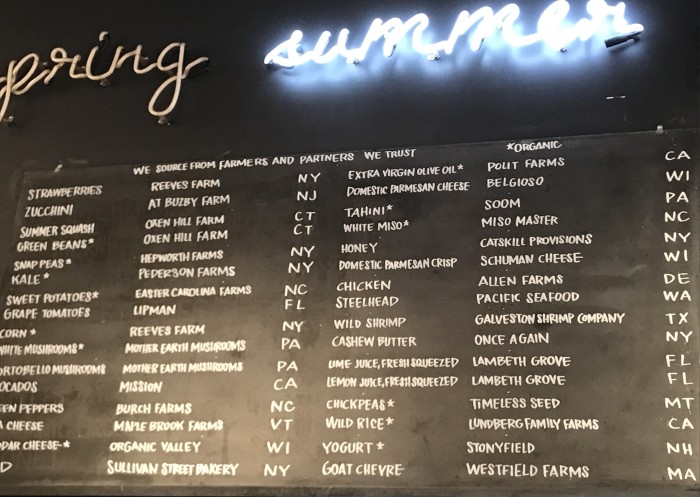 pring summer
*ORGANIC
WE SOURCE FROM FARMERS AND PARTNERS WE TRUST
STRAWBERRIES REEVES FARM NY EXTRA VIRGIN OLIVE OIL* POLIT FARMS CA
ZUCCHINI AT BUZBY FARM NJ DOMESTIC PARMESAN CHEESE BELGIOSO WI
SUMMER SQUASH OXEN HILL FARM CT TAHINI* SOOM PA
GREEN BEANS* OXEN HILL FARM CT WHITE MISO* MISO MASTER NC
SNAP PEAS* HEPWORTH FARMS NY HONEY CATSKILL PROVISIONS NY
KALE* PEDERSON FARMS NY DOMESTIC PARMESAN CRISP SCHUMAN CHEESE WI
SWEET POTATOES* EASTER CAROLINA FARMS NC CHICKEN ALLEN FARMS DE
GRAPE TOMATOES LIPMAN FL STEELHEAD PACIFIC SEAFOOD WA
CORN* REEVES FARM NY WILD SHRIMP GALVESTON SHRIMP COMPANY TX
WHITE MUSHROOMS* MOTHER EARTH MUSHROOMS PA CASHEW BUTTER ONCE AGAIN NY
ORTOBELLO MUSHROOMS MOTHER EARTH MUSHROOMS PA LIME JUICE, FRESH SQUEEZED LAMBETH GROVE FL
OCADOS MISSION CA LEMON JUICE, FRESH SQUEEZED LAMBETH GROVE FL
EEN PEPPERS BURCH FARMS NC CHICKPEAS* TIMELESS SEED MT
A CHEESE MAPLE BROOK FARMS VT WILD RICE* LUNDBERG FAMILY FARMS CA
DAR CHEESE* ORGANIC VALLEY WI YOGURT* STONYFIELD NH
D SULLIVAN STREET BAKERY NY GOAT CHEVRE WESTFIELD FARMS MA